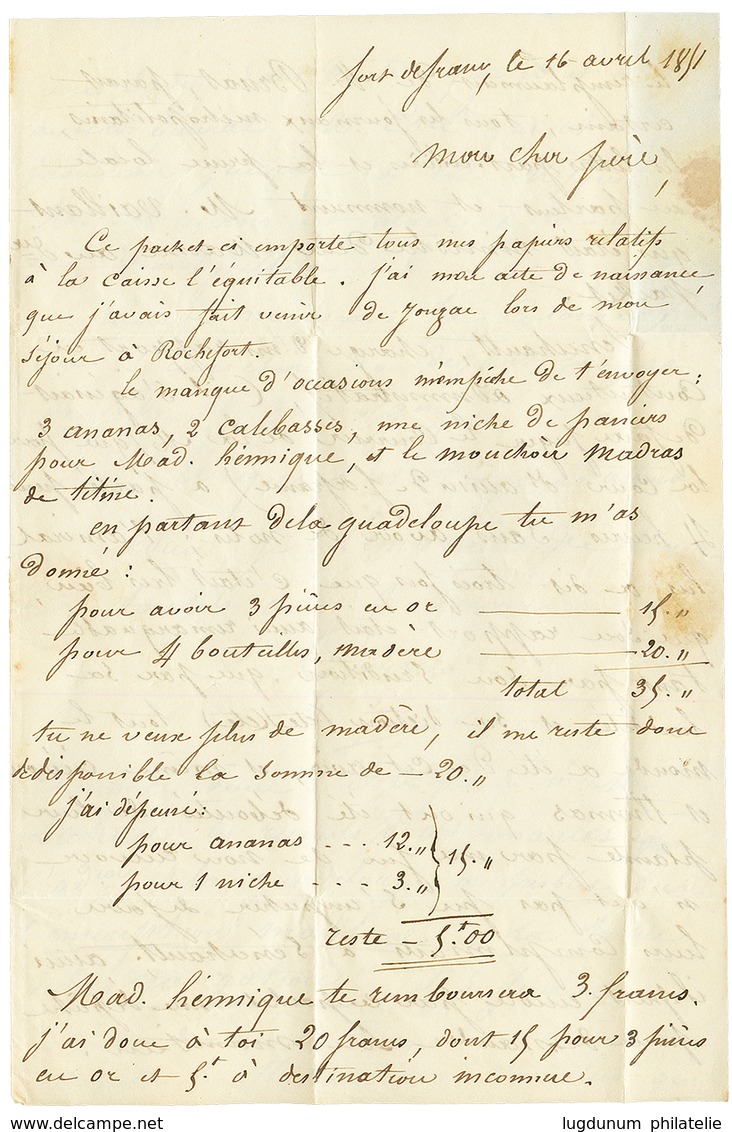 fort de france, le 16 avril 1851
Mon cher frère,
Ce packet-ci emporte tous mes papiers relatifs
à la caisse l'équitable. j'ai mon acte de naissance
que j'avais fait venir de Jonzac lors de mon
séjour à Rochefort.
le manque d'occasions m'empêche de t'envoyer :
3 ananas, 2 calebasses, une niche de paniers
pour Mad. hennique, et le mouchoir madras
de titine.
en partant de la guadeloupe tu m'as
donné :
pour avoir 3 pièces en or 15. "
pour 4 bouteilles, madère 20. "
total 35. "
tu ne veux plus de madère, il me reste donc
de disponible la somme de — 20. "
j'ai dépensé :
pour ananas - - - 12. " } 15. "
pour 1 niche - - - 3. "
reste — 5.f 00
Mad. hennique te remboursera 3. francs.
j'ai donc à toi 20 francs, dont 15 pour 3 pièces
en or et 5.f à destination inconnue.
delcampe.net
lugdunum philatelie